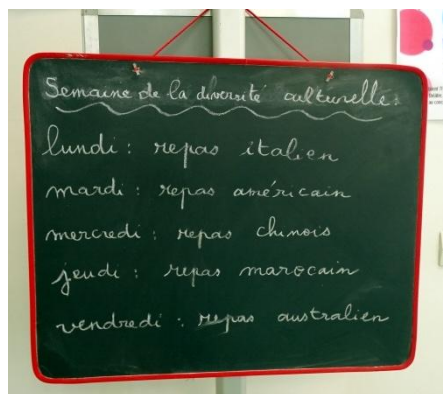 Semaine de la diversité culturelle :
lundi : repas italien
mardi : repas américain
mercredi : repas chinois
jeudi : repas marocain
vendredi : repas australien